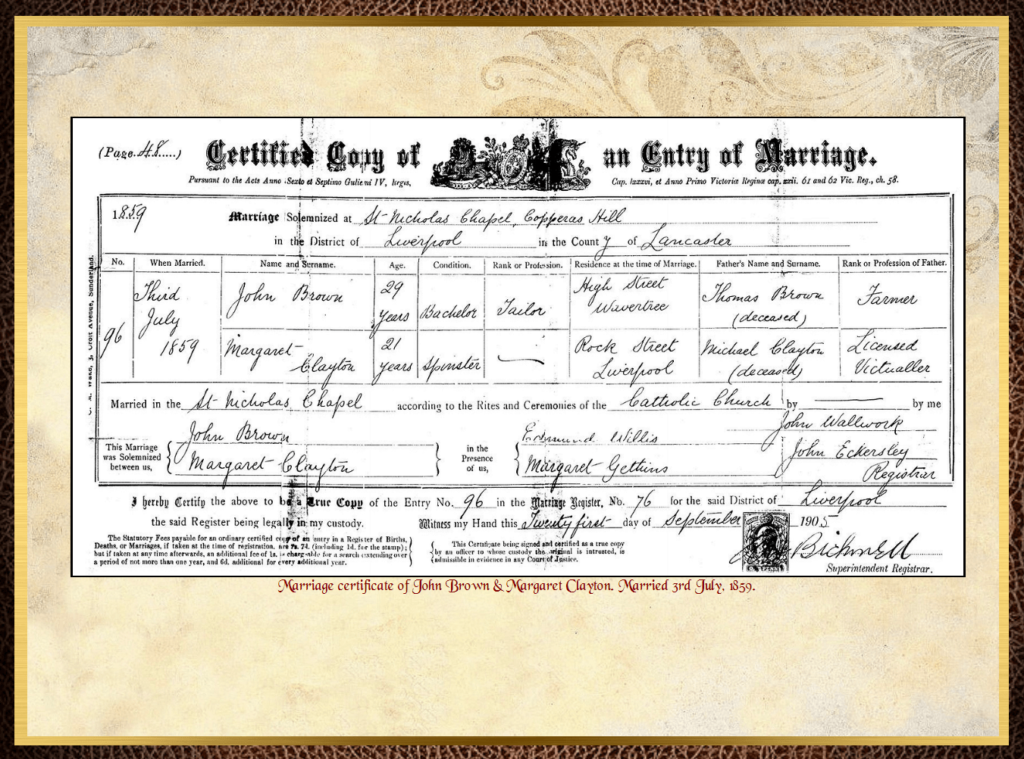 (Page 48.....) Certified Copy of an Entry of Marriage.
Pursuant to the Acts Anno Sexto et Septimo Gulielmi IV, Cap. lxxxvi, et Anno Primo Victoriæ Reginæ cap. xxii. 61 and 62 Vic. Reg., ch. 58.
1859 Marriage Solemnized at St Nicholas Chapel, Copperas Hill
in the District of Liverpool in the County of Lancaster
No. When Married. Name and Surname. Age. Condition. Rank or Profession. Residence at the time of Marriage. Father's Name and Surname. Rank or Profession of Father.
96 Third July 1859
John Brown 29 years Bachelor Tailor High Street Wavertree Thomas Brown (deceased) Farmer
Margaret Clayton 21 years Spinster — Rock Street Liverpool Michael Clayton (deceased) Licensed Victualler
Married in the St Nicholas Chapel according to the Rites and Ceremonies of the Catholic Church by — by me
This Marriage was Solemnized between us, { John Brown Margaret Clayton } in the Presence of us, { Edmund Willis Margaret Gethins John Wallwork
John Eckersley
Registrar
I hereby Certify the above to be a True Copy of the Entry No. 96 in the Marriage Register, No. 76 for the said District of Liverpool
the said Register being legally in my custody. Witness my Hand this Twenty first day of September 1905
The Statutory Fees payable for an ordinary certified copy of an entry in a Register of Births,
Deaths, or Marriages, if taken at the time of registration, are 2s. 7d. (including 1d. for the stamp);
but if taken at any time afterwards, an additional fee of 1s. is chargeable for a search extending over
a period of not more than one year, and 6d. additional for every additional year.
This Certificate being signed and certified as a true copy
by an officer to whose custody the original is intrusted, is
admissible in evidence in any Court of Justice.
Bicknell
Superintendent Registrar.
Marriage certificate of John Brown & Margaret Clayton. Married 3rd July, 1859.